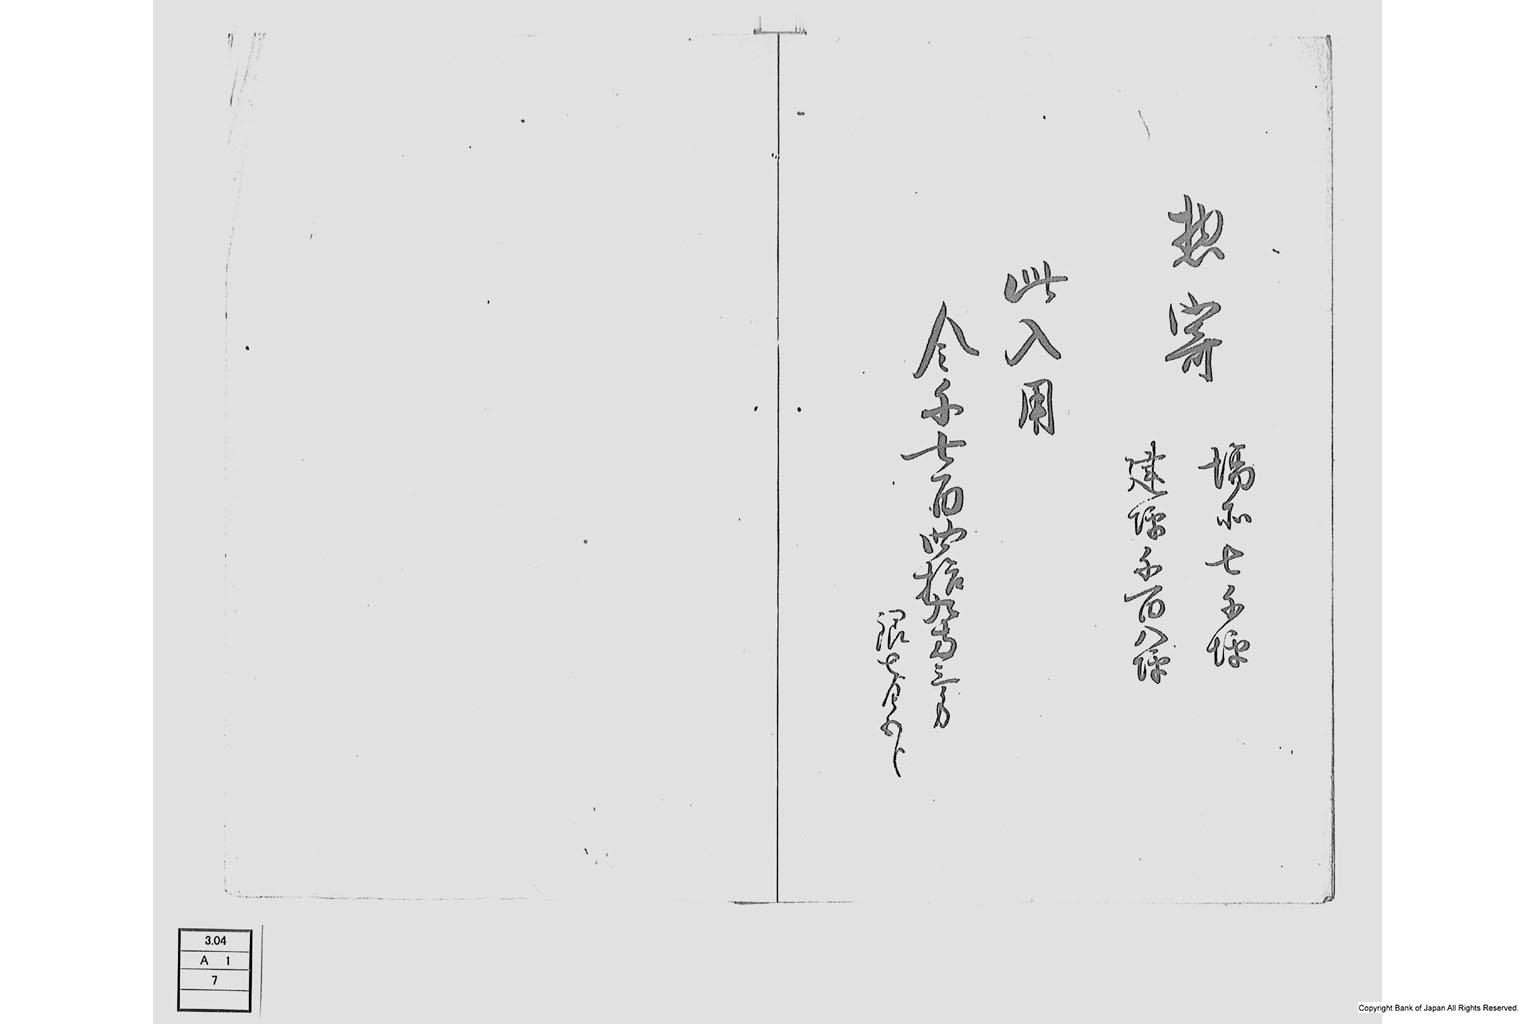 惣寄
場所七千坪
建坪千百八坪
此入用
金千七百四拾九両三分
銀七匁五分
3.04
A 1
7
Copyright Bank of Japan All Rights Reserved.